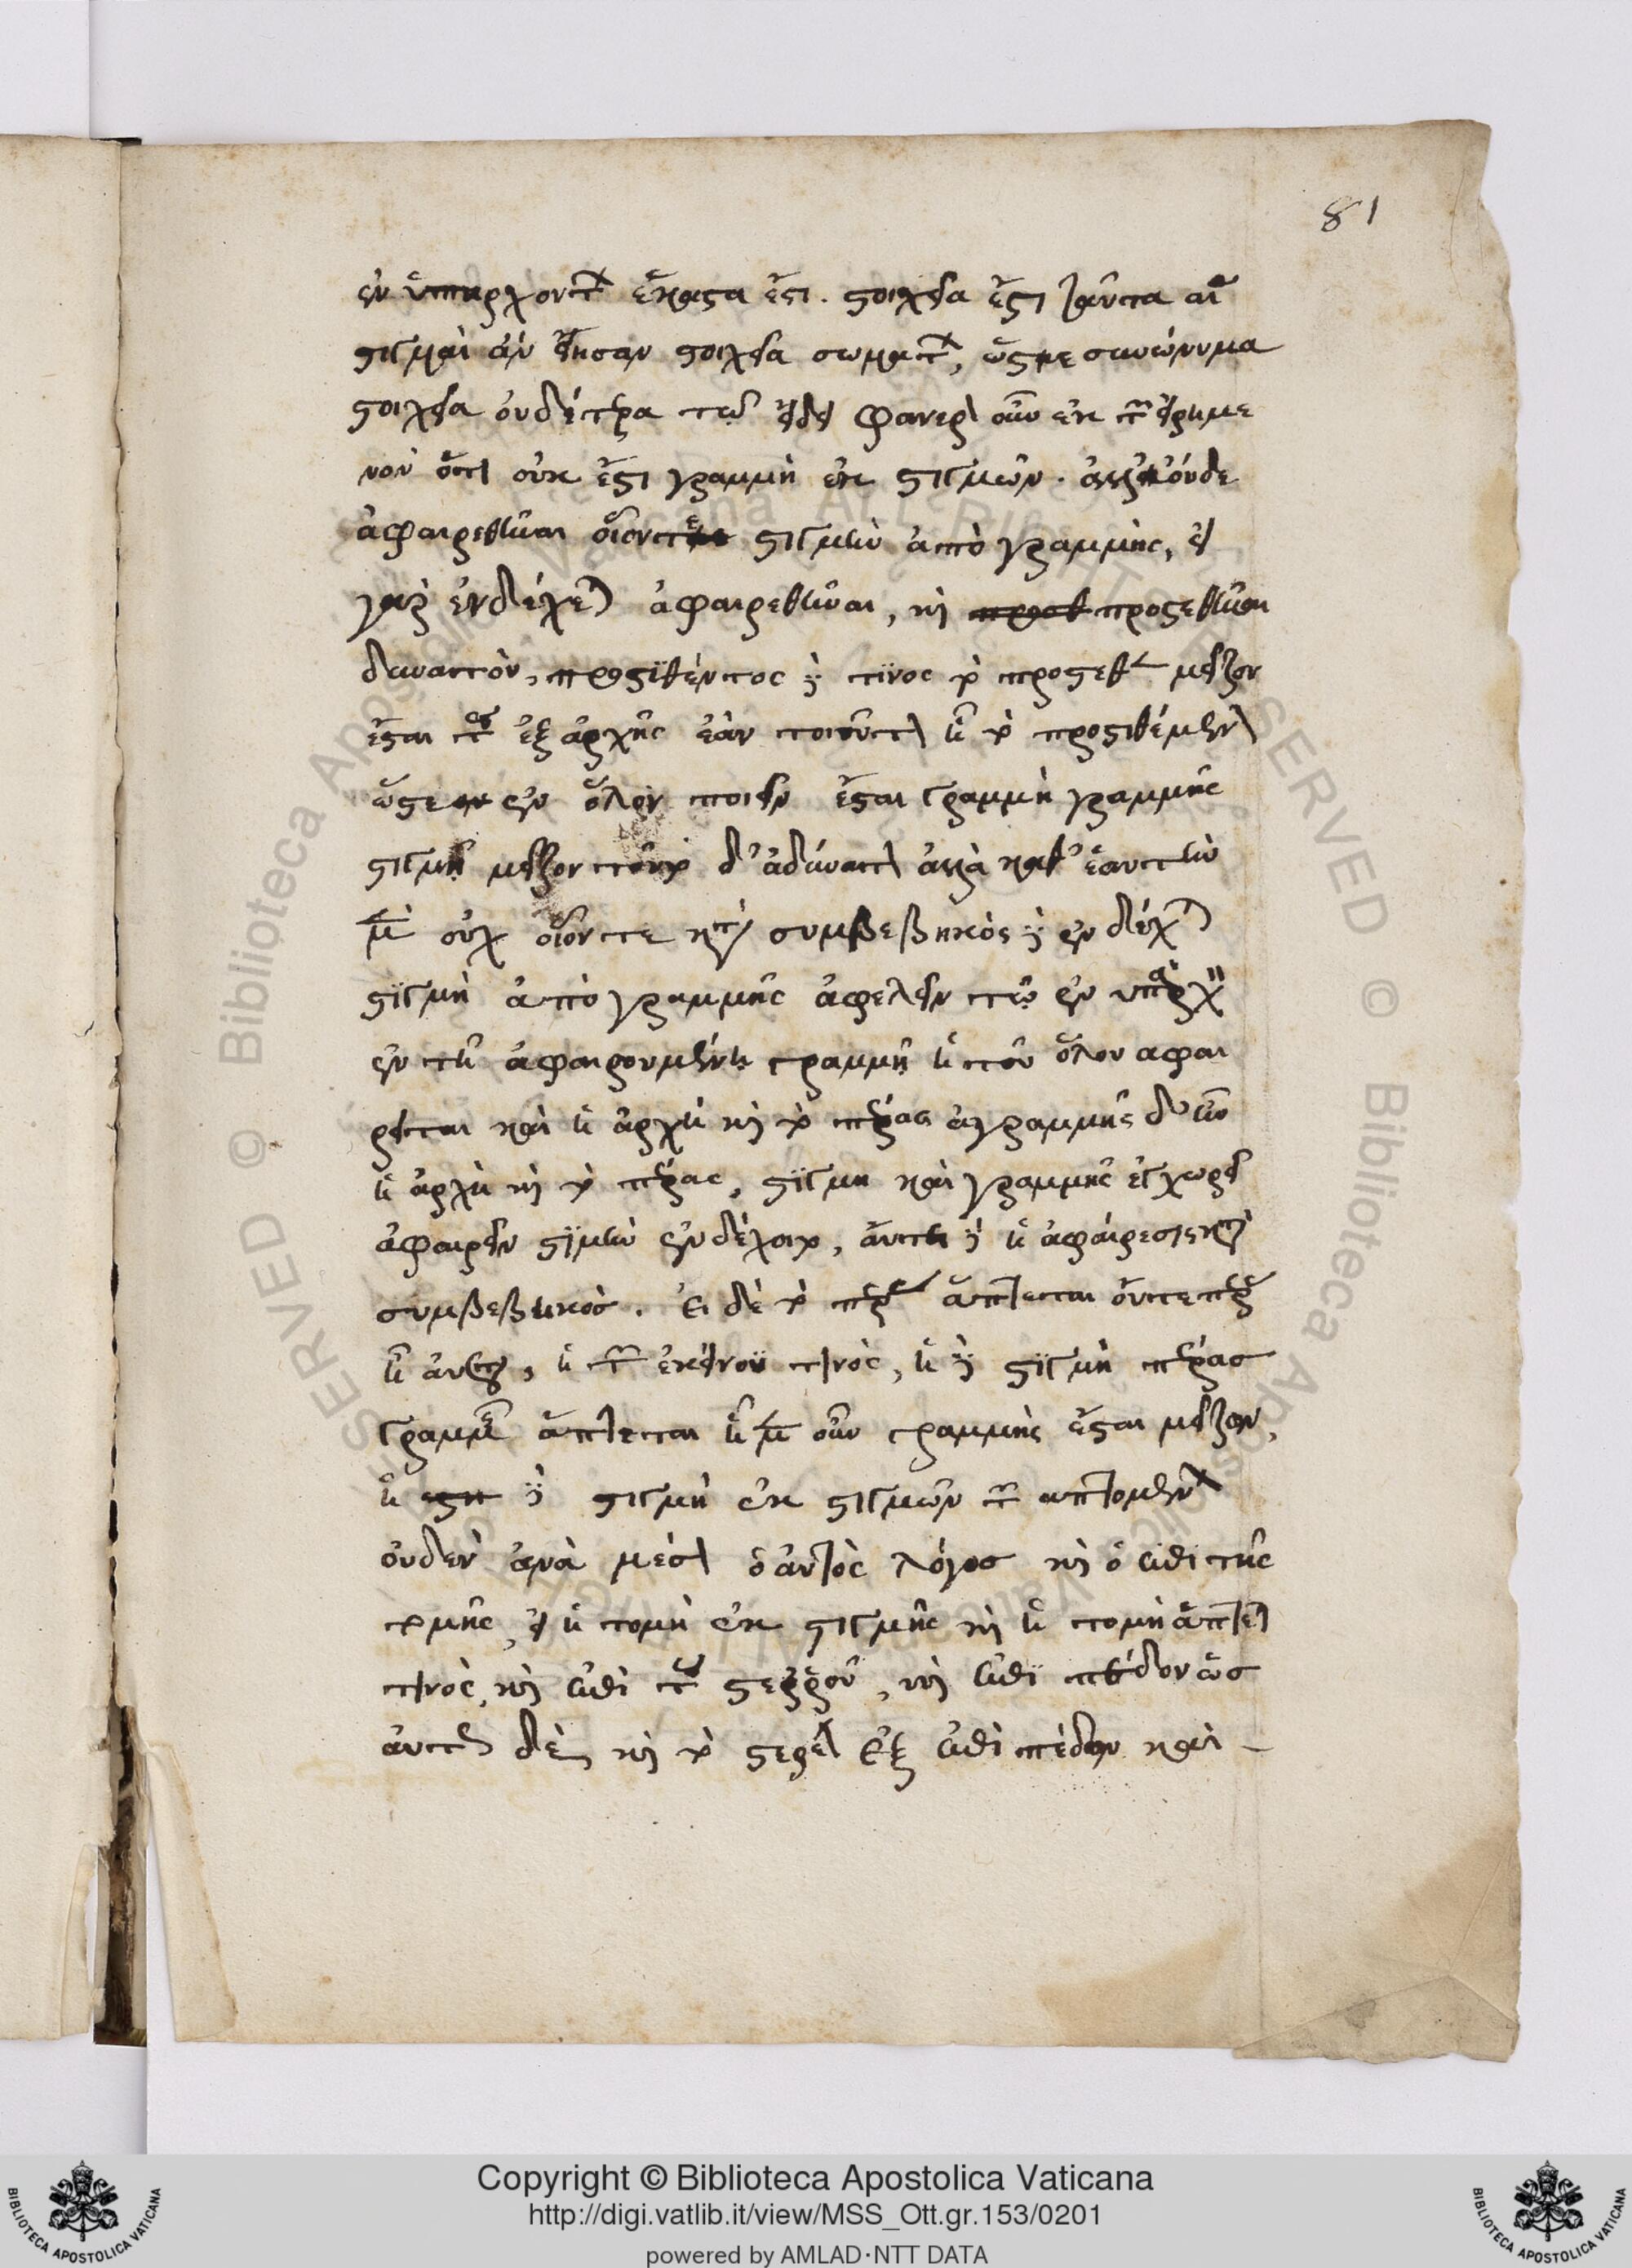 81
ἐν ὑπαρχόντων ἕκαστα ἐστι. στοιχεῖα ἐστι ταῦτα αἱ
στιγμαὶ ἂν εἴησαν στοιχεῖα σωμάτων, ὥστε συνώνυμα
στοιχεῖα οὐδέτερα τῷ εἴδει φανερὸν οὖν ἐκ τῶν εἰρημέ
νων ὅτι οὐκ ἔστι γραμμὴ ἐκ στιγμῶν. ἀλλ' οὐδὲ
ἀφαιρεθῆναι οἷόντε στιγμὴν ἀπὸ γραμμῆς, εἰ
γὰρ ἐνδέχεται ἀφαιρεθῆναι, καὶ προστεθῆναι
δυνατὸν, προστιθέντος δὲ τινος τὸ προστεθὲν μεῖζον
ἔσται τοῦ ἐξ ἀρχῆς ἐὰν τοιοῦτον ᾖ τὸ προστιθέμενον
ὥστε ἐν ὅλον ποιεῖν ἔσται γραμμὴ γραμμῆς
στιγμῇ μεῖζον τοῦτο δ' ἀδύνατον ἀλλὰ καθ' ἑαυτὴν
μὲν οὐχ οἷόντε κατὰ συμβεβηκὸς δὲ ἐνδέχεται
στιγμὴ ἀπὸ γραμμῆς ἀφελεῖν τῷ ἐν υπάρχειν
ἐν τῇ ἀφαιρουμένῃ γραμμῇ ἢ τοῦ ὅλου αφαι
ρεῖται καὶ ἡ ἀρχὴ καὶ τὸ πέρας γραμμῆς δ' ἦν
ἡ ἀρχὴ καὶ τὸ πέρας, στιγμη καὶ γραμμῆς ἐγχωρεῖ
ἀφαιρεῖν στιγμὴν ἐνδέχοιτο, αὕτη δὲ ἡ ἀφαίρεσις κατὰ
συμβεβηκὸς. Εἰ δὲ τὸ πέρας ἅπτεται οὗτε πέρας
ἢ αὐτοῦ, ἢ τῶν ἐκείνου τινὸς, ἡ δὲ στιγμὴ πέρας
γραμμῆς ἅπτεται ἡ μὲν οὖν γραμμῆς ἔσται μεῖζον,
ἡ δὲ στιγμὴ ἐκ στιγμῶν τῶν απτομένων
οὐδὲν ἀνὰ μέσον ὁ αὐτὸς λόγος καὶ ὁ ἐπὶ τῆς
τομῆς, εἰ ἡ τομὴ ἐκ στιγμῆς καὶ ἡ τομὴ ἅπτεται
τινὸς, καὶ ἐπὶ τοῦ στερεοῦ, καὶ ἐπιπέδου ὡς
αὔτως δὲ, καὶ τὸ στερεὸν ἐξ ἐπιπέδων καὶ
Copyright © Biblioteca Apostolica Vaticana
http://digi.vatlib.it/view/MSS_Ott.gr.153/0201
powered by AMLAD·NTT DATA